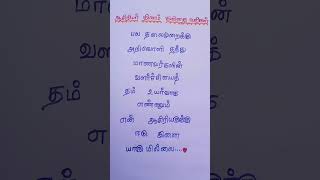 ஆசிரியர் தினம் கவிதை வரிகள்
பல தலைமுறைக்கு
அறிவொளி தந்து
மாணவர்களின்
வளர்ச்சியை
தம் உயர்வாக
எண்ணும்
என் ஆசிரியருக்கு
ஈடு இணை
யாரு மில்லை....